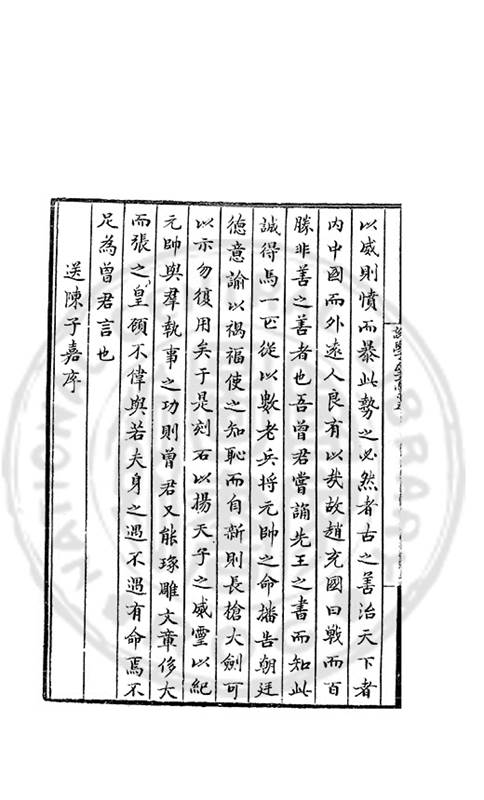 以威則憤而暴此勢之必然者古之善治天下者
内中國而外遠人良有以哉故趙充國曰戰而百
勝非善之善者也吾曾君嘗誦先王之書而知此
誠得馬一匹從以數老兵將元帥之命播告朝廷
德意諭以禍福使之知恥而自新則長槍大劍可
以示勿復用矣于是刻石以揚天子之威靈以紀
元帥與羣執事之功則曾君又能琢雕文章侈大
而張之皇顧不偉與若夫身之遇不遇有命焉不
足為曾君言也
送陳子嘉序
NATIONAL LIBRARY